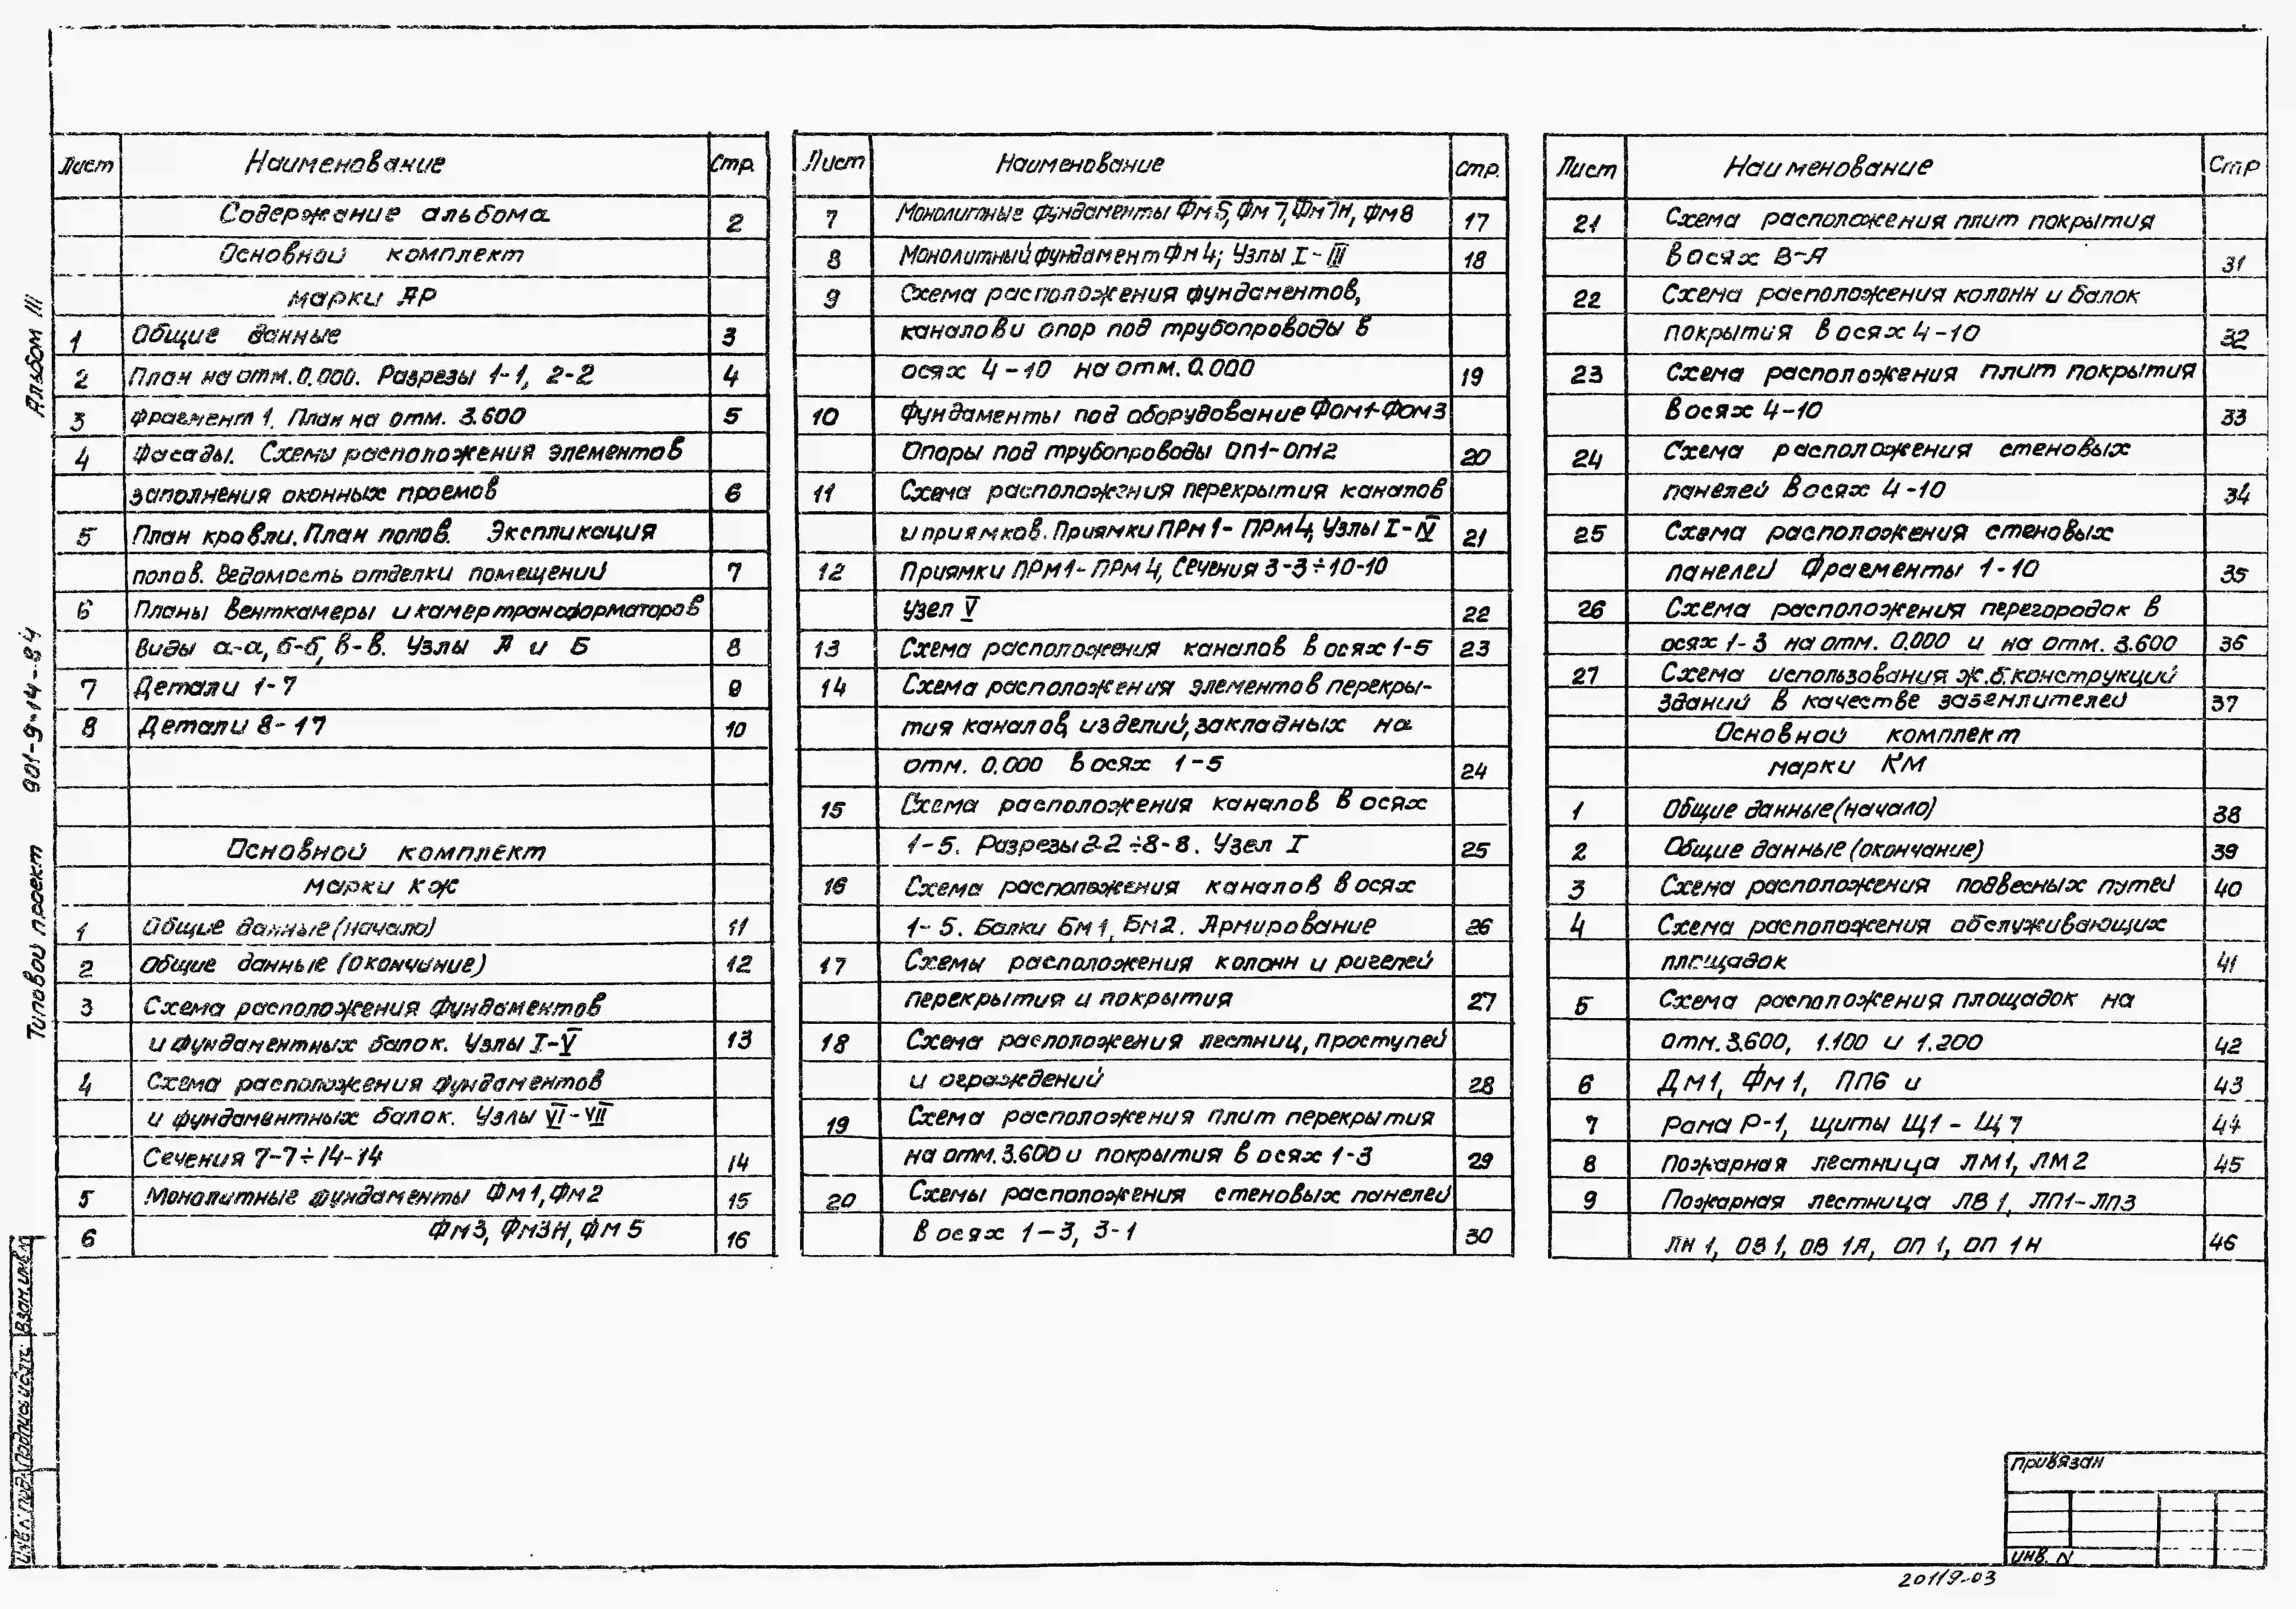 Альбом III
Типовой проект 901-9-14-84
Лист Наименование Стр.
Содержание альбома 2
Основной комплект
марки АР
1 Общие данные 3
2 План на отм. 0.000. Разрезы 1-1, 2-2 4
3 Фрагмент 1. План на отм. 3.600 5
4 Фасады. Схемы расположения элементов
заполнения оконных проемов 6
5 План кровли. План полов. Экспликация
полов. Ведомость отделки помещений 7
6 Планы венткамеры и камер трансформаторов
Виды а-а, б-б, в-в. Узлы А и Б 8
7 Детали 1-7 9
8 Детали 8-17 10
Основной комплект
марки КЖ
1 Общие данные (начало) 11
2 Общие данные (окончание) 12
3 Схема расположения фундаментов
и фундаментных балок. Узлы I-V 13
4 Схема расположения фундаментов
и фундаментных балок. Узлы VI-VII
Сечения 7-7÷14-14 14
5 Монолитные фундаменты Фм1, Фм2 15
6 Фм3, Фм3Н, Фм5 16
Лист Наименование Стр.
7 Монолитные фундаменты Фм5, Фм7, Фм7н, Фм8 17
8 Монолитный фундамент Фм4; Узлы I-III 18
9 Схема расположения фундаментов,
каналов и опор под трубопроводы в
осях 4-10 на отм. 0.000 19
10 Фундаменты под оборудование Фом1-Фом3
Опоры под трубопроводы ОП1-ОП12 20
11 Схема расположения перекрытия каналов
и приямков. Приямки ПРм1-ПРм4, Узлы I-IV 21
12 Приямки ПРм1-ПРм4, Сечения 3-3÷10-10
Узел V 22
13 Схема расположения каналов в осях 1-5 23
14 Схема расположения элементов перекры-
тия каналов, изделий, закладных на
отм. 0.000 в осях 1-5 24
15 Схема расположения каналов в осях
1-5. Разрезы 2-2÷8-8. Узел I 25
16 Схема расположения каналов в осях
1-5. Балки Бм1, Бм2. Армирование 26
17 Схемы расположения колонн и ригелей
перекрытия и покрытия 27
18 Схема расположения лестниц, проступей
и ограждений 28
19 Схема расположения плит перекрытия
на отм. 3.600 и покрытия в осях 1-3 29
20 Схемы расположения стеновых панелей
в осях 1-3, 3-1 30
Лист Наименование Стр
21 Схема расположения плит покрытия
в осях В-А 31
22 Схема расположения колонн и балок
покрытия в осях 4-10 32
23 Схема расположения плит покрытия
в осях 4-10 33
24 Схема расположения стеновых
панелей в осях 4-10 34
25 Схема расположения стеновых
панелей Фрагменты 1-10 35
26 Схема расположения перегородок в
осях 1-3 на отм. 0.000 и на отм. 3.600 36
27 Схема использования ж.б. конструкций
зданий в качестве заземлителей 37
Основной комплект
марки КМ
1 Общие данные (начало) 38
2 Общие данные (окончание) 39
3 Схема расположения подвесных путей 40
4 Схема расположения обслуживающих
площадок 41
5 Схема расположения площадок на
отм. 3.600, 1.100 и 1.200 42
6 ДМ1, ФМ1, ПП6 и 43
7 Рама Р-1, щиты Щ1 - Щ7 44
8 Пожарная лестница ЛМ1, ЛМ2 45
9 Пожарная лестница ЛВ1, ЛП1-ЛП3
ЛН1, ОВ1, ОВ1А, ОП1, ОП1Н 46
Инв. N подл. Подпись и дата Взам. инв. N
Привязан
Инв. N
20119-03